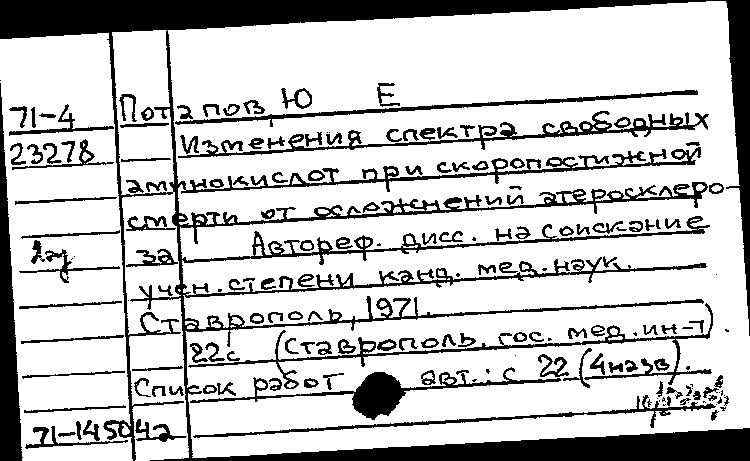 71-4 Потапов, Ю Е
23278 Изменения спектра свободных
аминокислот при скоропостижной
смерти от осложнений атеросклеро-
за. Автореф. дисс. на соискание
учен. степени канд. мед. наук.
Ставрополь, 1971.
22с. (Ставрополь. гос. мед. ин-т).
Список работ авт.: с 22 (4 назв).
71-14504а